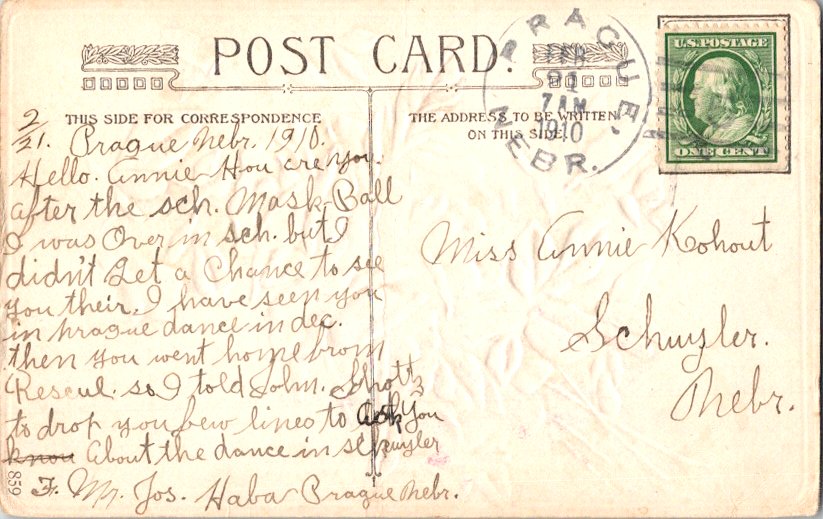 POST CARD.
THIS SIDE FOR CORRESPONDENCE
THE ADDRESS TO BE WRITTEN
ON THIS SIDE
PRAGUE, NEBR.
FEB
21
7 AM
1910
U.S. POSTAGE
ONE CENT
2/21. Prague Nebr. 1910.
Hello. Annie How are you.
after the sch. Mask Ball
I was Over in sch. but I
didn't Get a Chance to see
you their. I have seen you
in prague dance in dec.
then you went home from
Rescue. so I told John.
to drop you few lines to ask you
know About the dance in schuyler
F. Mr. Jos. Haba Prague Nebr.
Miss Annie Kohout
Schuyler.
Nebr.
859